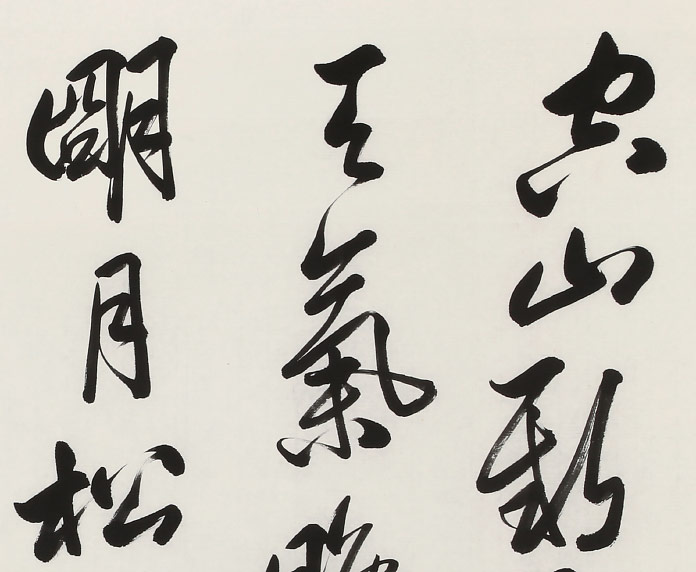 空山新
天氣
明月松